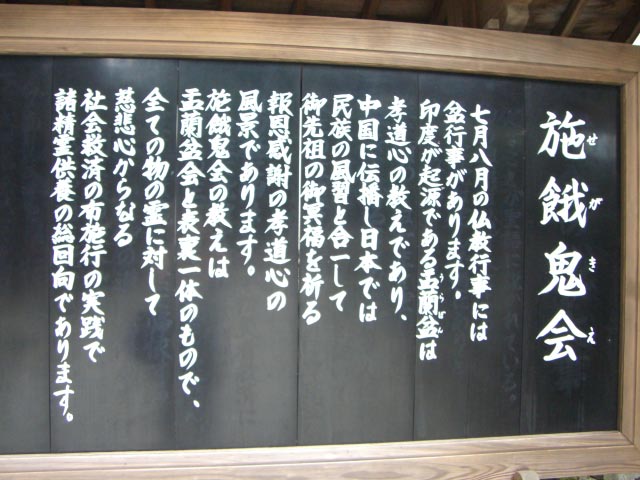 施餓鬼会
せがきえ
七月八月の仏教行事には
盆行事があります。
印度が起源である盂蘭盆は
うらぼん
孝道心の教えであり、
中国に伝播し日本では
民族の風習と合一して
御先祖の御冥福を祈る
報恩感謝の孝道心の
風景であります。
施餓鬼会の教えは
盂蘭盆会と表裏一体のもので、
全ての物の霊に対して
慈悲心からなる
社会救済の布施行の実践で
諸精霊供養の総回向であります。